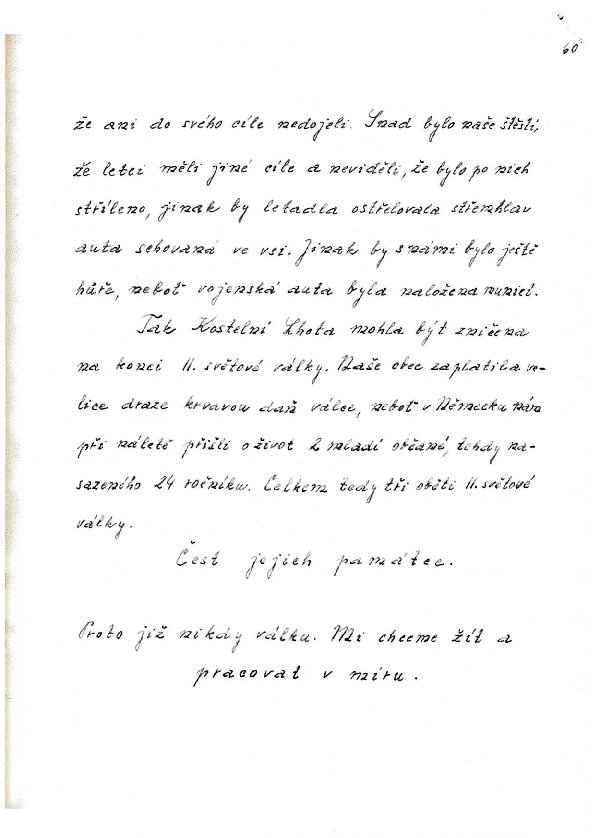 60
že ani do svého cíle nedojeli. Snad bylo naše štěstí,
že letci měli jiné cíle a neviděli, že bylo po nich
stříleno, jinak by letadla ostřelovala střemhlav
auta schovaná ve vsi. Jinak by s námi bylo ještě
hůře, neboť vojenská auta byla naložena municí.
Tak Kostelní Lhota mohla být zničena
na konci II. světové války. Naše obec zaplatila ve-
lice draze krvavou daň válce, neboť v Německu nám
při náletě přišli o život 2 mladí občané, tehdy na-
sazeného 24 ročníku. Celkem tedy tři oběti II. světové
války.
Čest jejich památce.
Proto již nikdy válku. Mi chceme žít a
pracovat v míru.